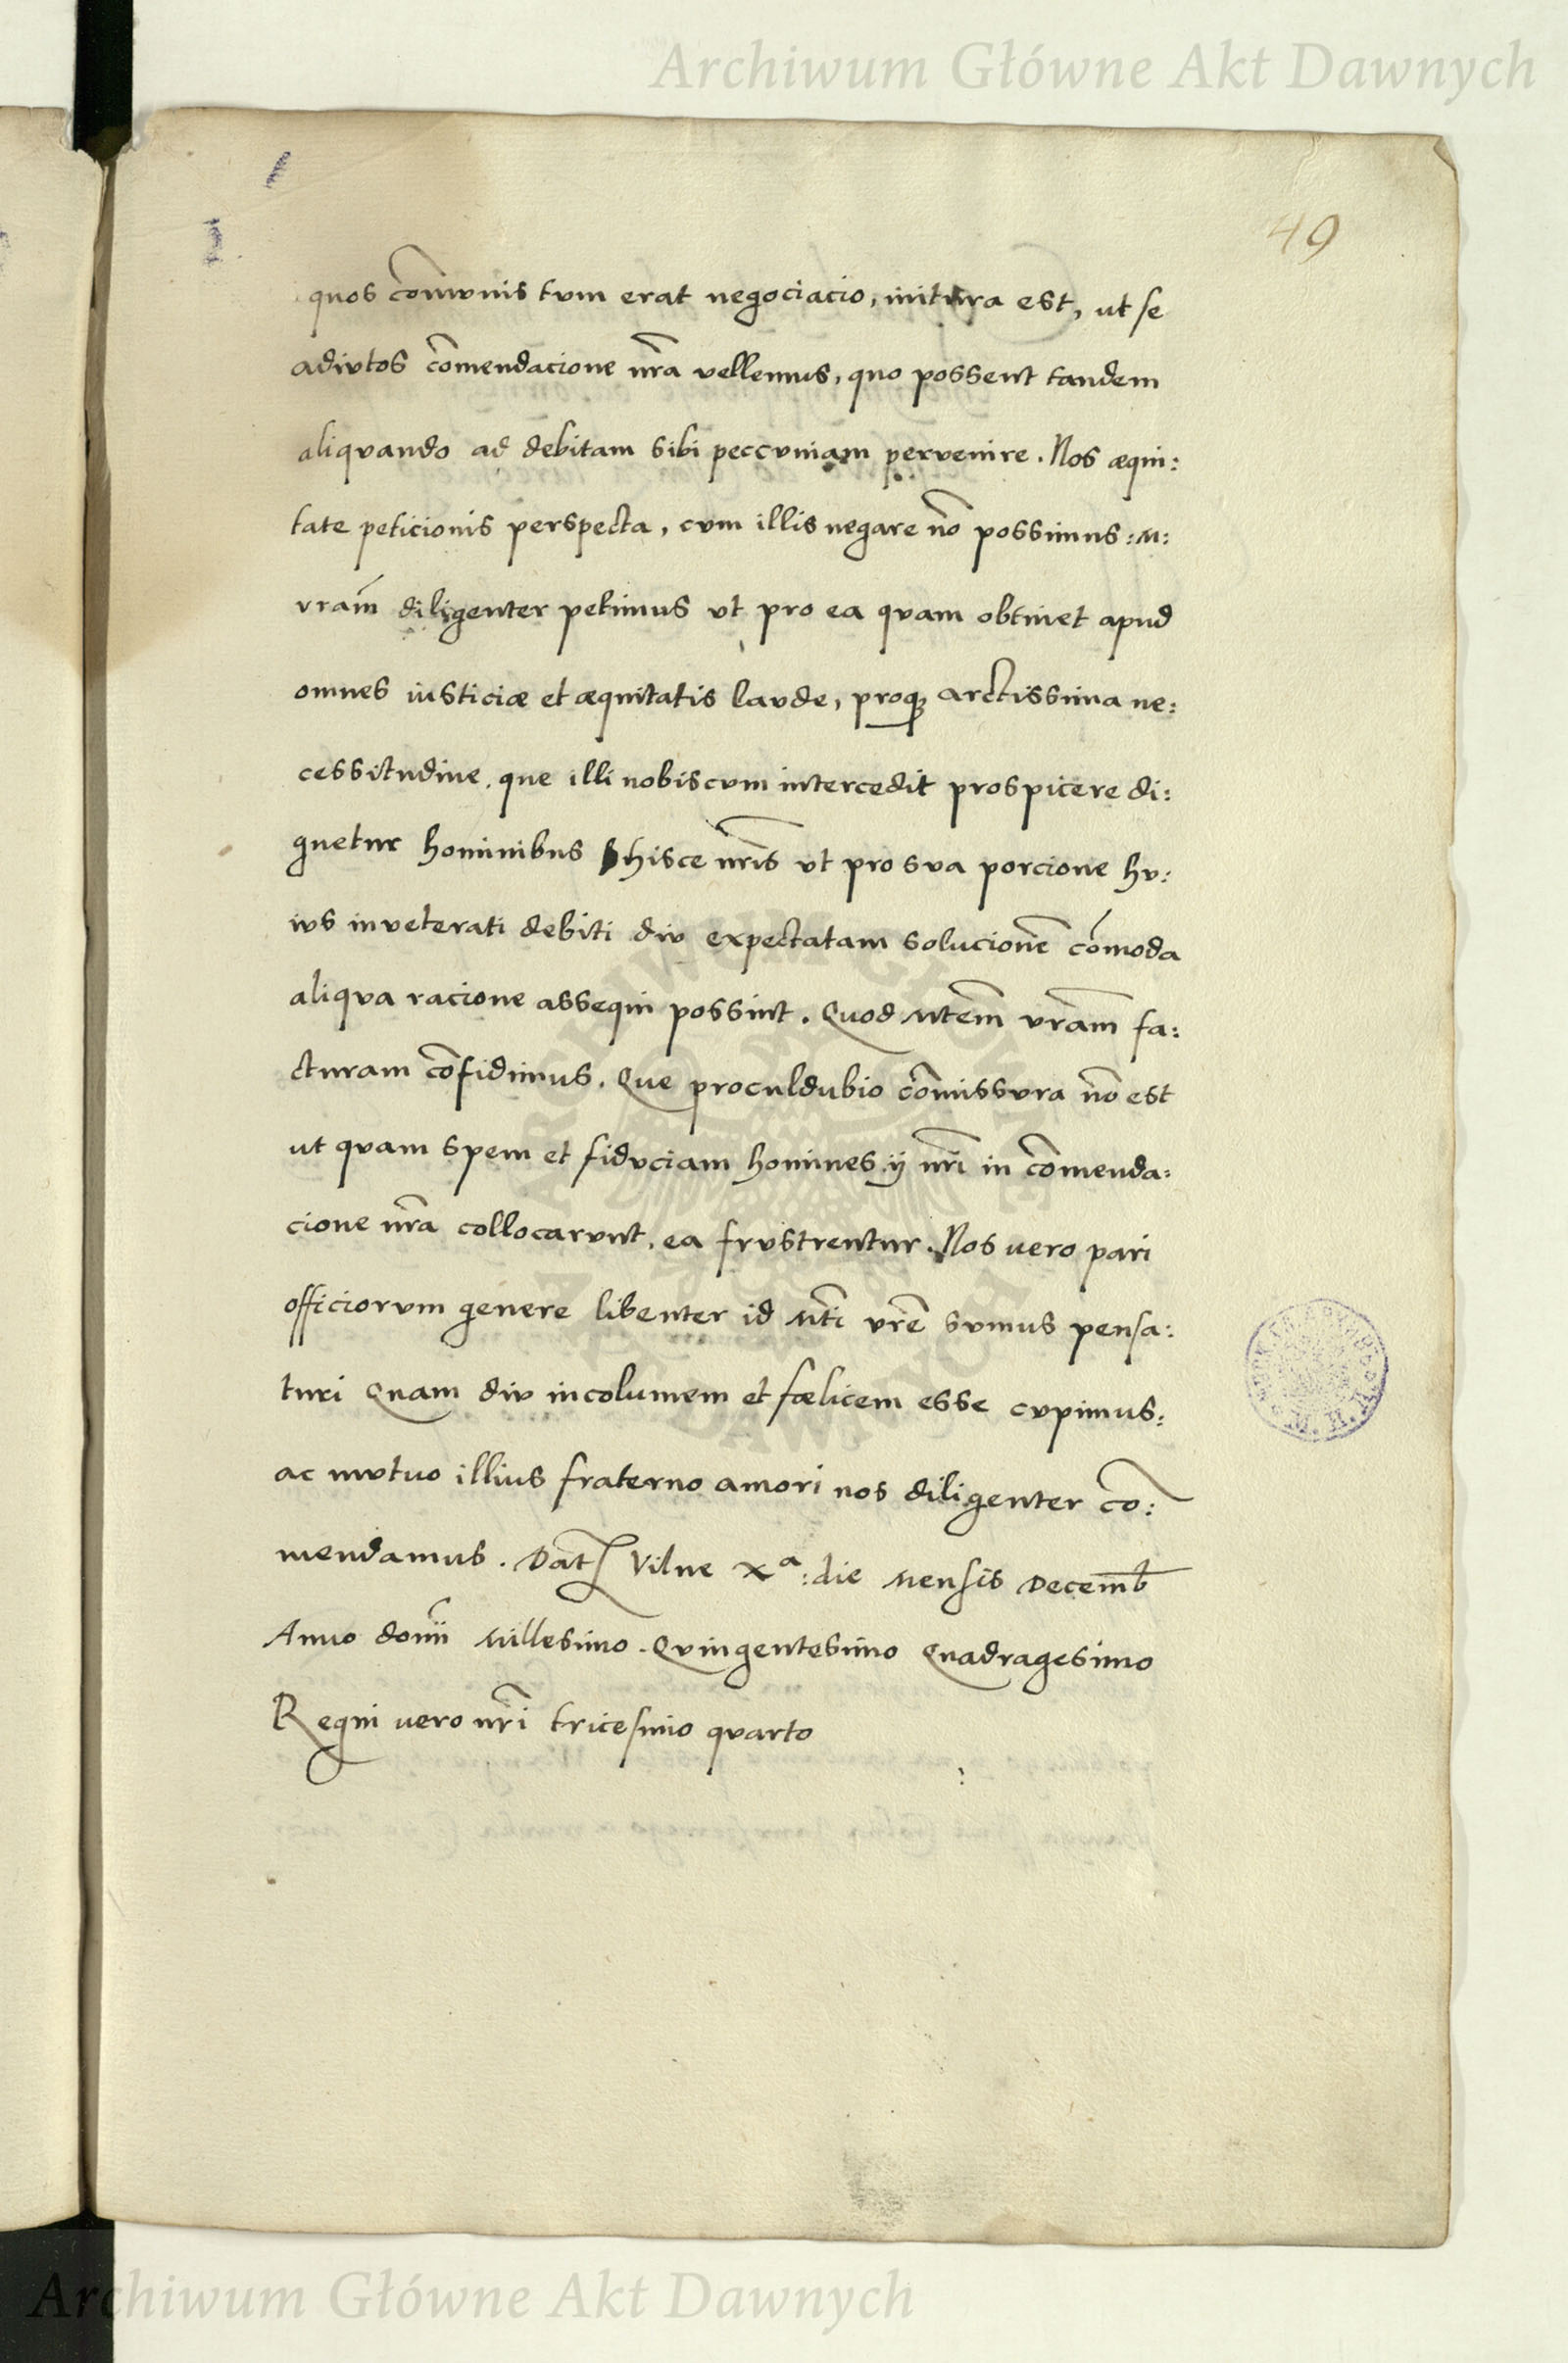 Archiwum Główne Akt Dawnych
49
quos com̄vnis tvm erat negociacio, initura est, ut se
adivtos com̄endacione nr̄a vellemus, quo possent tandem
aliqvando ad debitam sibi peccvniam pervenire. Nos æqui:
tate peticionis perspecta, cvm illis negare nō possimus: M:
vrām diligenter petimus vt pro ea qvam obtinet apud
omnes iusticiæ et æquitatis lavde, proqꝫ arctissima ne:
cessitudine, que illi nobiscvm intercedit prospicere di:
gnetur hominibus hisce nr̄is vt pro sva porcione hv:
ivs inveterati debiti div expectatam solucionē cōmoda
aliqva racione assequi possint. Quod Mtem̄ vrām fa:
cturam cōfidimus. Que proculdubio cōmissvra nō est
ut qvam spem et fidvciam homines ij nr̄i in cōmenda:
cione nr̄a collocarvnt, ea frvstrentur. Nos vero pari
officiorvm genere libenter id Mti vrē svmus pensa:
turi Quam div incolumem et fœlicem esse cvpimus:
ac mvtuo illius fraterno amori nos diligenter cō:
mendamus. Dat Vilne Xᵃ: die Mensis Decemb
Anno domī Millesimo Qvingentesimo Quadragesimo
Regni vero nr̄i tricesimo qvarto
Archiwum Główne Akt Dawnych